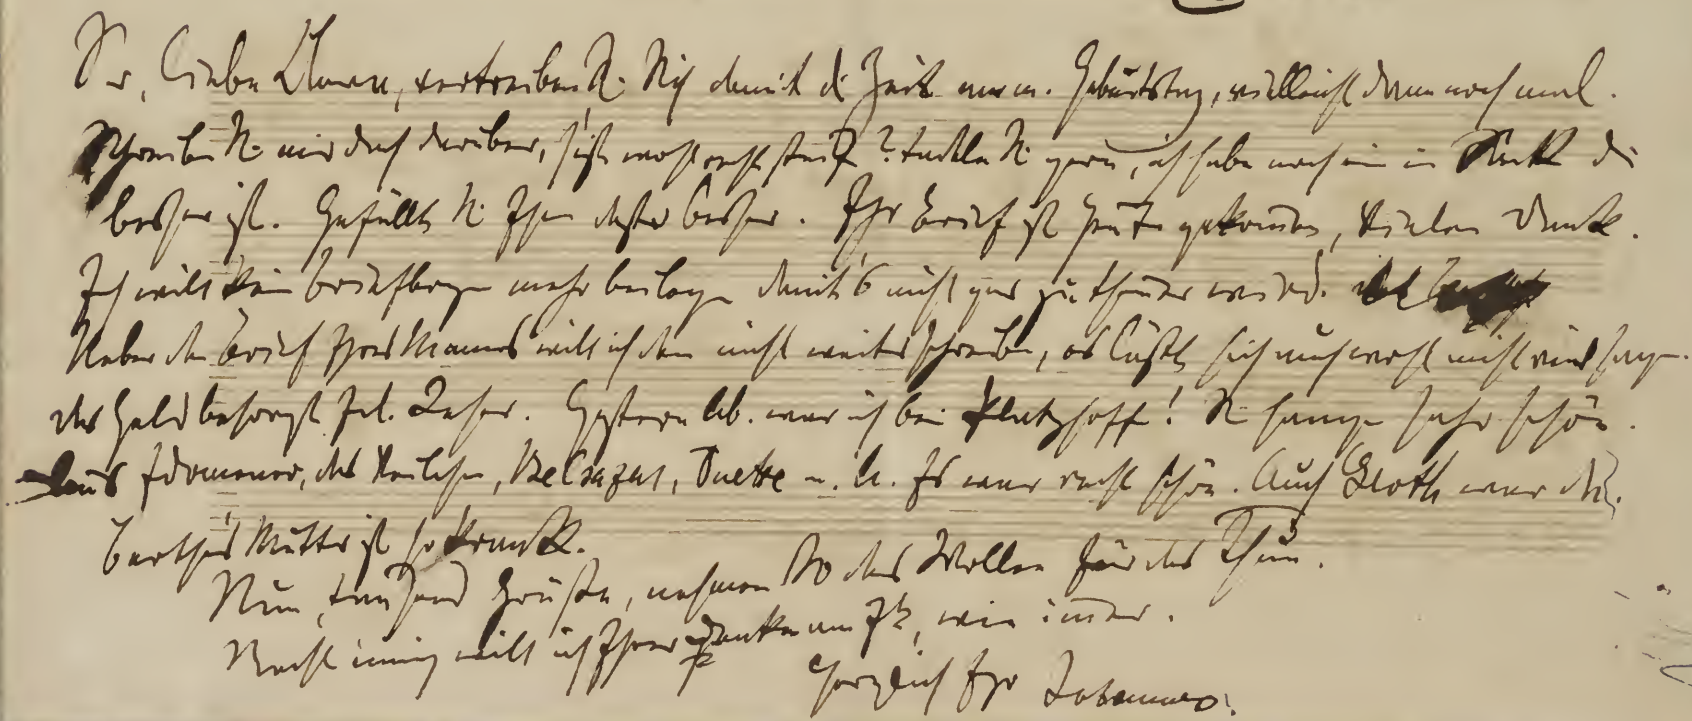 So, liebe Clara, vertreiben Sie sich damit die Zeit an m. Geburtstag, vielleicht dann noch mal.
Schreiben Sie mir doch darüber, ist's wohl recht steif? Tadeln Sie gern, ich habe noch ein in die
besser ist. Gefällt's Sie Ihnen desto besser. Ihr Brief ist heute gekommen, vielen Dank.
Ich will kein Briefbogen mehr beilegen damit's nicht gar zu theuer wird.
Ueber den Brief Ihres Mannes will ich denn nicht weiter schreiben, es läßt sich auch wohl nicht viel sagen.
das Geld besorgt Frl. Leser. Gestern Ab. war ich bei Platzhoff! Sie sangen sehr schön.
aus Idomeneo, das Veilchen, Belsazar, Duette u. A. Es war recht schön. Auch Groth war da.
Bertha's Mutter ist so krank.
Nun, tausend Grüße, nehmen Sie das Wollen für das Thun.
Recht innig will ich Ihrer denken am 13, wie immer.
Herzlich Ihr Johannes.